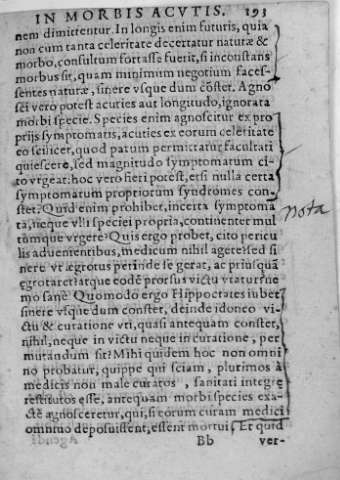 IN MORBIS ACVTIS. 193
nem dimittentur. In longis enim futuris, quia
non cum tanta celeritate decertatur naturæ &
morbo, consultum fortasse fuerit, si inconstans
morbus sit, quam minimum negotium faces-
sentes naturæ, sinere vsque dum cõstet. Agno
sci vero potest acuties aut longitudo, ignorata
morbi specie. Species enim agnoscitur ex pro
prijs symptomatis, acuties ex eorum celeritate
eo scilicet, quod parum permittatur facultati
quiescere, sed magnitudo symptomatum ci-
to vrgeat: hoc vero fieri potest, etsi nulla certa
symptomatum propriorum syndromes con-
stet. Quid enim prohibet, incerta symptoma
ta, neque vlli speciei propria, continenter mul
tumque vrgere? Quis ergo probet, cito pericu
lis aduenientibus, medicum nihil agere? sed si
nere vt ægrotus perinde se gerat, ac priusquã
ęgrotaret? atque eodē prorsus victu vtatur? ne
mo sanè. Quomodo ergo Hippocrates iubet
sinere vsque dum constet, deinde idoneo vi-
ctu & curatione vti, quasi antequam constet,
nihil, neque in victu neque in curatione, per
mutandum sit? Mihi quidem hoc non omni
no probatur, quippe qui sciam, plurimos à
medicis non male curatos, sanitati integrę
restitutos esse, antequam morbi species exa-
ctè agnosceretur, qui, si eorum curam medici
omnino deposuissent, essent mortui. Et quid
Bb ver-
Nota